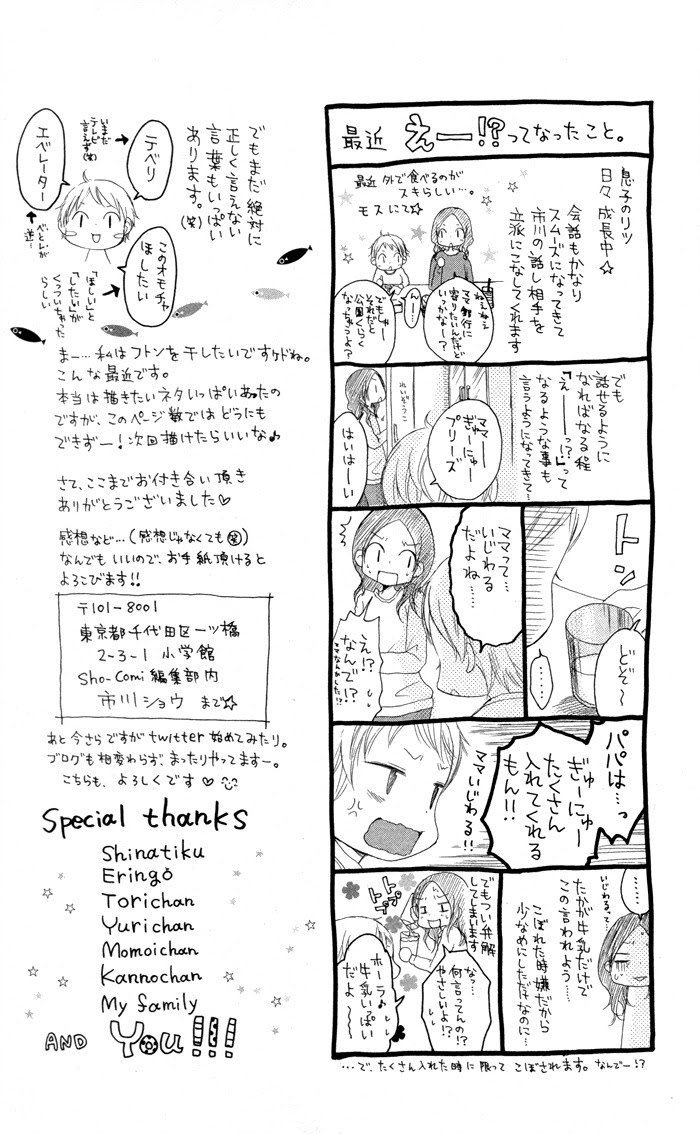 最近 えー!?ってなったこと。
息子のリツ
日々成長中☆
会話もかなり
スムーズになってきて
市川の話し相手を
立派にこなしてくれます
最近 外で食べるのが
スキらしい…。
モスにて☆
ねぇねぇ
ママ銀行に
寄りたいんだけど
いっかなー?
んー…
でもしゃー
それだと
公園くらく
なっちゃうよ?
でも
話せるように
なればなる程
「えーーっ!?」って
なるような事も
言うようになってきて…
れいぞうこ
ママー
ぎゅーにゅー
プリーズ
はいはーい
トン
どぞ〜
……
ママって…
いじわる
だよね……
え!?
なんで!?
ママなんかした!?
パパは…っ
ぎゅーにゅー
たくさん
入れてくれる
もん!!
ママいじわる!!
……
いじわるって…
たかが牛乳だけで
この言われよう…
こぼれた時嫌だから
少なめにしただけなのに…
でもつい弁解
してしまいます
トプトプ
なっ…
何言ってんの!?
やさしいよ!?
ホーラ♪
牛乳いっぱい
だよ〜
…で、たくさん入れた時に限って こぼされます。なんでー!?
でもまだ絶対に
正しく言えない
言葉もいっぱい
あります。(笑)
テベリ
いまだ
テレビと
言えず(笑)
エベレーター
べとレが
逆…
このオモチャ
ほしたい
「ほしい」と
「したい」が
くっついちゃった
らしい
まー…私はフトンを干したいですケドね。
こんな最近です。
本当は描きたいネタいっぱいあったの
ですが、このページ数ではどうにも
できずー!次回描けたらいいな♪
さて、ここまでお付き合い頂き
ありがとうございました♡
感想など…(感想じゃなくても㊗)
なんでもいいので、お手紙頂けると
よろこびます!!
〒101-8001
東京都千代田区一ツ橋
2-3-1 小学館
Sho-Comi編集部内
市川ショウ まで☆
あと今さらですがtwitter始めてみたり。
ブログも相変わらず、まったりやってますー。
こちらも、よろしくです♡
Special thanks
Shinatiku
Eringo
Torichan
Yurichan
Momoichan
Kannochan
My family
AND You!!!